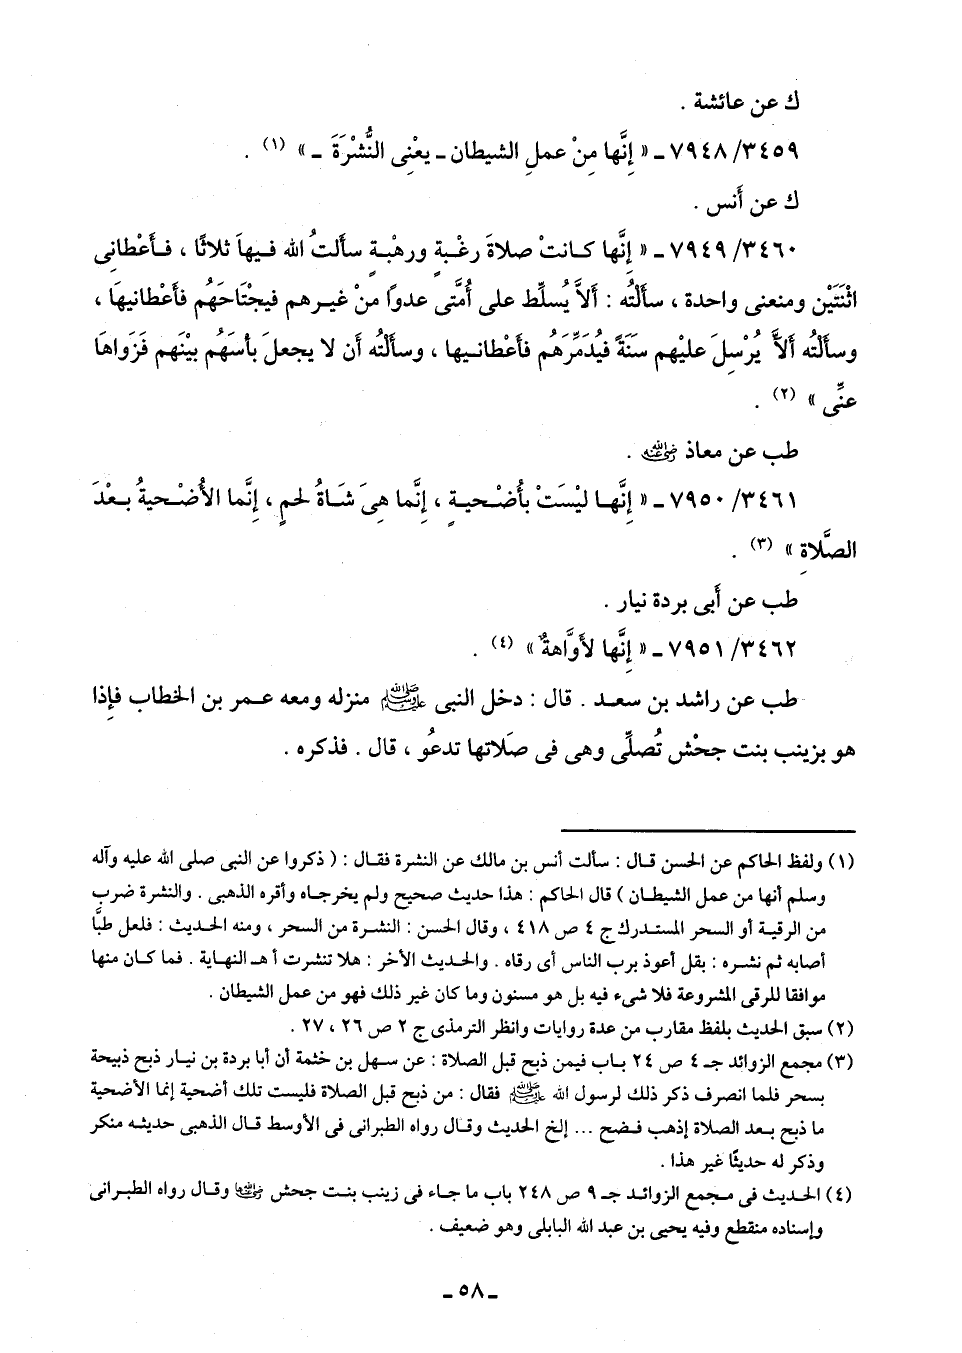 ك عن عائشة .
٣٤٥٩/ ٧٩٤٨ ـ « إِنَّها مِنْ عملِ الشيطان ـ يعْنِى النُّشْرَةَ ـ » (١) .
ك عن أَنس .
٣٤٦٠/ ٧٩٤٩ ـ « إِنَّها كانتْ صلاةَ رغْبةٍ ورهْبةٍ سألتُ الله فيهاَ ثلاثًا ، فأَعْطانِى
اثْنَتَيْن ومنعنى واحدة ، سألْتُه : ألاَّ يُسلِّط على أُمَّتى عدواً منْ غيرهم فيجْتَاحَهُم فأَعْطانيهَا ،
وسألْتُه ألاَّ يُرْسِلَ عليْهم سنَةً فيُدَمِّرَهُم فأعْطانيها ، وسألْتُه أن لا يجعلَ بأسَهُم بيْنَهم فَزَواهَا
عنِّى » (٢) .
طب عن معاذ رضي الله عنه .
٣٤٦١/ ٧٩٥٠ ـ « إِنَّها ليْستْ بأُضْحيةٍ ، إِنَّما هىَ شَاةُ لحمٍ ، إِنَّما الأُضْحيةُ بعْدَ
الصَّلاةِ » (٣) .
طب عن أَبى بردة نيار .
٣٤٦٢/ ٧٩٥١ ـ « إِنَّها لأَوَّاهةٌ » (٤) .
طب عن راشد بن سعد . قال : دخل النبى ﷺ منزله ومعه عمر بن الخطاب فإِذا
هو بزينب بنت جحْش تُصلِّى وهى فى صلَاتها تدعُو ، قال . فذكره .
(١) ولفظ الحاكم عن الحسن قال : سألت أنس بن مالك عن النشرة فقال : ( ذكروا عن النبى صلى الله عليه وآله
وسلم أنها من عمل الشيطان ) قال الحاكم : هذا حديث صحيح ولم يخرجاه وأقره الذهبى . والنشرة ضرب
من الرقية أو السحر المستدرك ج ٤ ص ٤١٨ ، وقال الحسن : النشرة من السحر ، ومنه الحديث : فلعل طبًّا
أصابه ثم نشره : بقل أعوذ برب الناس أى رقاه . والحديث الأخر : هلا تنشرت أ هـ النهاية . فما كان منها
موافقا للرقى المشروعة فلا شىء فيه بل هو مسنون وما كان غير ذلك فهو من عمل الشيطان .
(٢) سبق الحديث بلفظ مقارب من عدة روايات وانظر الترمذى ج ٢ ص ٢٦ ، ٢٧ .
(٣) مجمع الزوائد جـ ٤ ص ٢٤ باب فيمن ذبح قبل الصلاة : عن سهل بن خثمة أن أبا بردة بن نيار ذبح ذبيحة
بسحر فلما انصرف ذكر ذلك لرسول الله ﷺ فقال : من ذبح قبل الصلاة فليست تلك أضحية إنما الأضحية
ما ذبح بعد الصلاة إذهب فضح ... إلخ الحديث وقال رواه الطبرانى فى الأوسط قال الذهبى حديثه منكر
وذكر له حديثًا غير هذا .
(٤) الحديث فى مجمع الزوائد جـ ٩ ص ٢٤٨ باب ما جاء فى زينب بنت جحش رضي الله عنها وقال رواه الطبرانى
وإسناده منقطع وفيه يحيى بن عبد الله البابلى وهو ضعيف .
ـ ٥٨ ـ